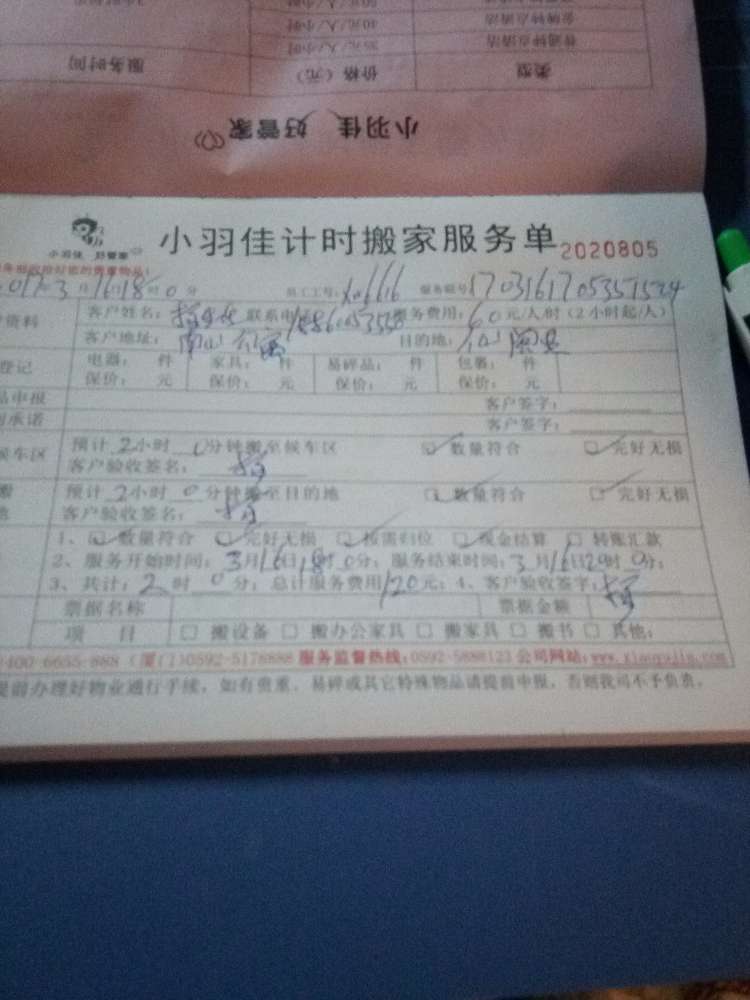 50元/人/小时
金牌钟点清洁 40元/人/小时
普通钟点清洁 35元/人/小时
类型 价格（元） 服务时间
小羽佳 好管家
小羽佳 好管家
小羽佳计时搬家服务单 2020805
3月16日18时0分 员工工号：xm6616 服务编号
资料 客户姓名： 联系电话 服务费用：60元/人/时（2小时起/人）
客户地址： 目的地：
登记 电器： 件 家具： 件 易碎品： 件 包裹： 件
保价： 元 保价： 元 保价： 元 保价： 元
品申报 客户签字：
承诺 客户签字：
候车区 预计2小时0分钟搬至候车区 数量符合 完好无损
客户验收签名：
预计2小时0分钟搬至目的地 数量符合 完好无损
客户验收签名：
1、数量符合 完好无损 按需归位 现金结算 转账汇款
2、服务开始时间：3月16日18时0分；服务结束时间：3月16日20时0分；
3、共计：2时0分；总计服务费用120元；4、客户验收签字：
票据名称 票据金额
项 目 搬设备 搬办公家具 搬家具 搬书 其他：
400-6655-888（厦门）0592-5178888 服务监督热线：0592-5888123 公司网站：www.xiaoyujia.com
提前办理好物业通行手续，如有贵重、易碎或其它特殊物品请提前申报，否则我司不予负责。